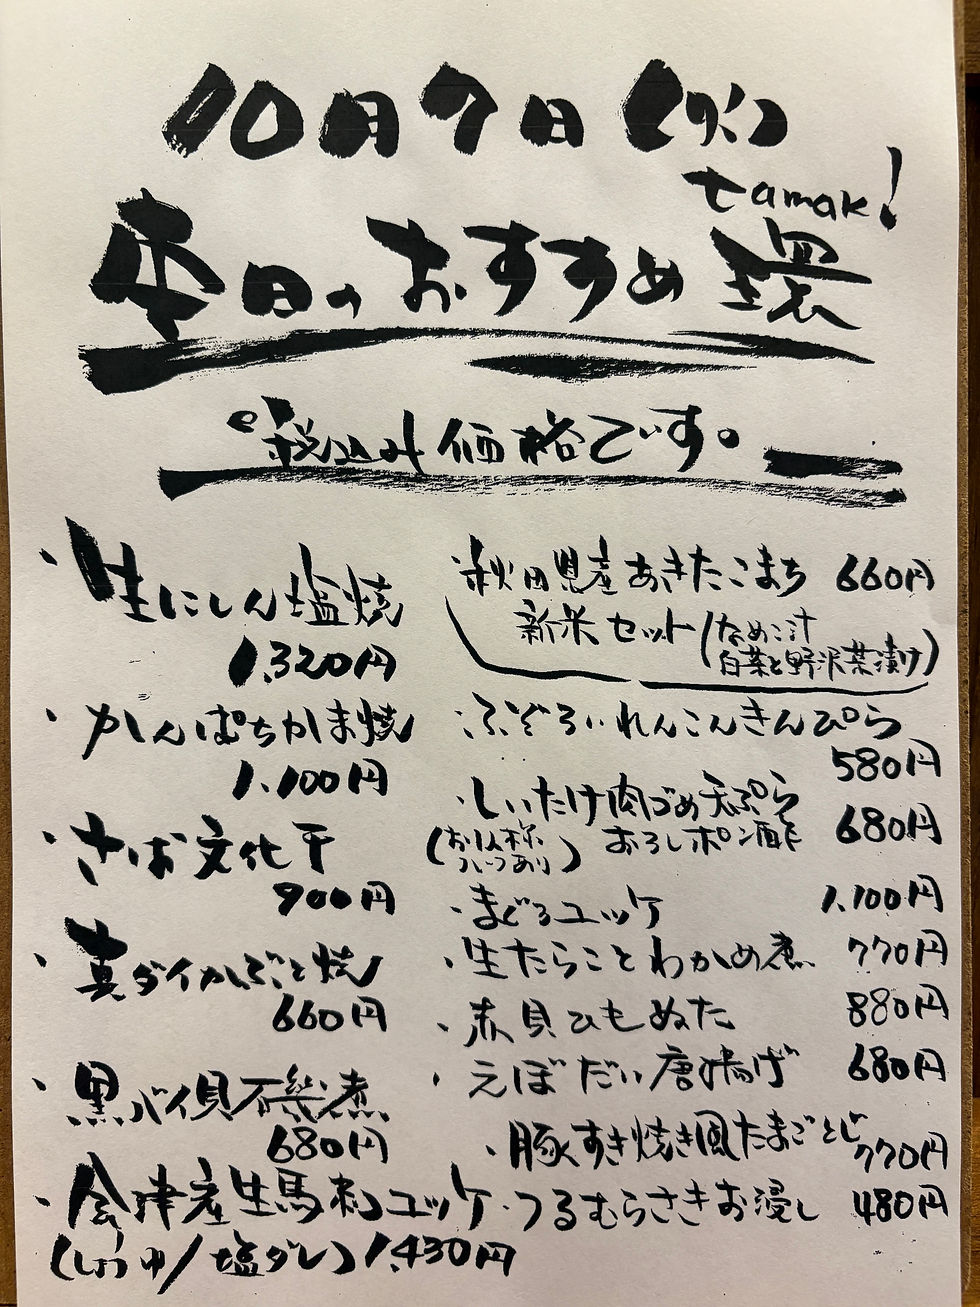 10月7日(火)
tamaki
本日のおすすめ 環
税込み価格です。
・生にしん塩焼
1,320円
・かんぱちかま焼
1,100円
・さば文化干
900円
・真ダイかぶと焼
660円
・黒バイ貝磯煮
680円
・会津産生馬刺ユッケ
(しょうゆ/塩ダレ) 1,430円
・秋田県産あきたこまち 660円
新米セット(なめこ汁
白菜と野沢菜漬け)
・ふぞろいれんこんきんぴら
580円
・しいたけ肉づめ天ぷら
おろしポン酢 680円
・まぐろユッケ 1,100円
・生たらことわかめ煮 770円
・赤貝ひもぬた 880円
・えぼだい唐揚げ 680円
・豚すき焼き風たまごとじ
770円
・つるむらさきお浸し 480円